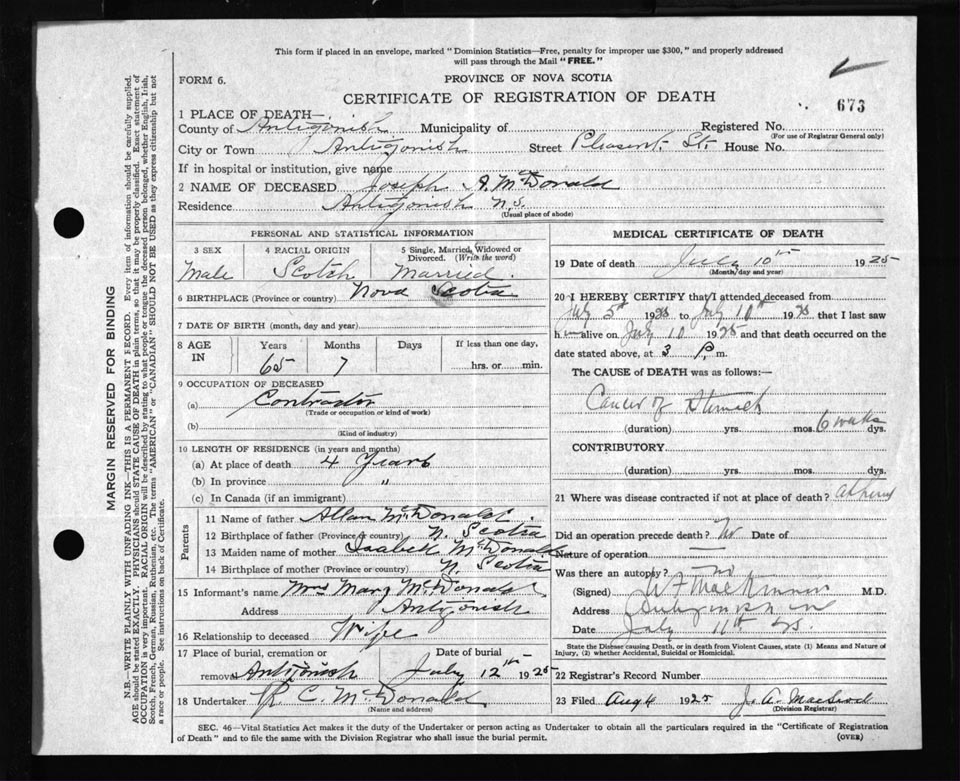 This form if placed in an envelope, marked "Dominion Statistics—Free, penalty for improper use $300," and properly addressed
will pass through the Mail "FREE."
FORM 6.
PROVINCE OF NOVA SCOTIA
CERTIFICATE OF REGISTRATION OF DEATH
673
1 PLACE OF DEATH—
County of Antigonish Municipality of Registered No.
(For use of Registrar General only)
City or Town Antigonish Street Pleasent St. House No.
If in hospital or institution, give name
2 NAME OF DECEASED Joseph A. McDonald
Residence Antigonish N.S.
(Usual place of abode)
PERSONAL AND STATISTICAL INFORMATION
3 SEX 4 RACIAL ORIGIN 5 Single, Married, Widowed or
Divorced. (Write the word)
Male Scotch Married.
6 BIRTHPLACE (Province or country) Nova Scotia
7 DATE OF BIRTH (month, day and year)
8 AGE IN Years Months Days If less than one day,
65 7 hrs. or min.
9 OCCUPATION OF DECEASED
(a) Contractor
(Trade or occupation or kind of work)
(b)
(Kind of industry)
10 LENGTH OF RESIDENCE (in years and months)
(a) At place of death 4 Years
(b) In province "
(c) In Canada (if an immigrant)
Parents
11 Name of father Allan McDonald.
12 Birthplace of father (Province or country) N. Scotia
13 Maiden name of mother Isabell McDonald
14 Birthplace of mother (Province or country) N. Scotia
15 Informant's name Mrs Mary McDonald
Address Antigonish
16 Relationship to deceased Wife
17 Place of burial, cremation or Date of burial
removal Antigonish July 12th 1925
18 Undertaker R. C. McDonald
(Name and address)
MEDICAL CERTIFICATE OF DEATH
19 Date of death July 10th 1925
(Month, day and year)
20 I HEREBY CERTIFY that I attended deceased from
July 5th 1925 to July 10th 1925 that I last saw
him alive on July 10 1925 and that death occurred on the
date stated above, at 3 P. m.
The CAUSE of DEATH was as follows:—
Cancer of Stomach
(duration) yrs. mos. 6 weeks dys.
CONTRIBUTORY
(duration) yrs. mos. dys.
21 Where was disease contracted if not at place of death?
Did an operation precede death? No Date of
Nature of operation
Was there an autopsy? No
(Signed) W F MacKinnon M.D.
Address Antigonish
Date July 11th 25.
State the Disease causing Death, or in death from Violent Causes, state (1) Means and Nature of
Injury, (2) whether Accidental, Suicidal or Homicidal.
22 Registrar's Record Number
23 Filed Aug 4 1925 J. A. MacLeod
(Division Registrar)
SEC. 46—Vital Statistics Act makes it the duty of the Undertaker or person acting as Undertaker to obtain all the particulars required in the "Certificate of Registration
of Death" and to file the same with the Division Registrar who shall issue the burial permit.
(OVER)
MARGIN RESERVED FOR BINDING
N.B.—WRITE PLAINLY WITH UNFADING INK—THIS IS A PERMANENT RECORD. Every item of information should be carefully supplied.
AGE should be stated EXACTLY. PHYSICIANS should STATE CAUSE OF DEATH in plain terms, so that it may be properly classified. Exact statement of
OCCUPATION is very important. RACIAL ORIGIN will be described by stating to what people or tongue the deceased person belonged, whether English, Irish,
Scotch, French, German, Russian, Ruthenian, etc. The terms "AMERICAN" or "CANADIAN" SHOULD NOT BE USED as they express citizenship but not
a race or people. See instructions on back of Certificate.